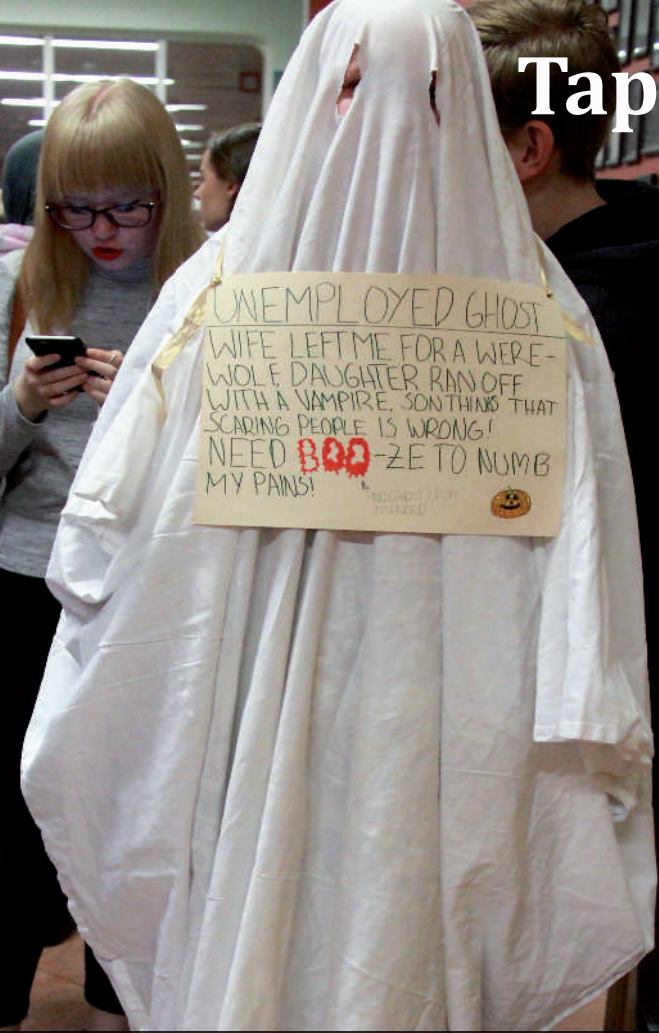 Tap
UNEMPLOYED GHOST
WIFE LEFT ME FOR A WERE-
WOLF, DAUGHTER RAN OFF
WITH A VAMPIRE. SON THINKS THAT
SCARING PEOPLE IS WRONG!
NEED BOO-ZE TO NUMB
MY PAINS!